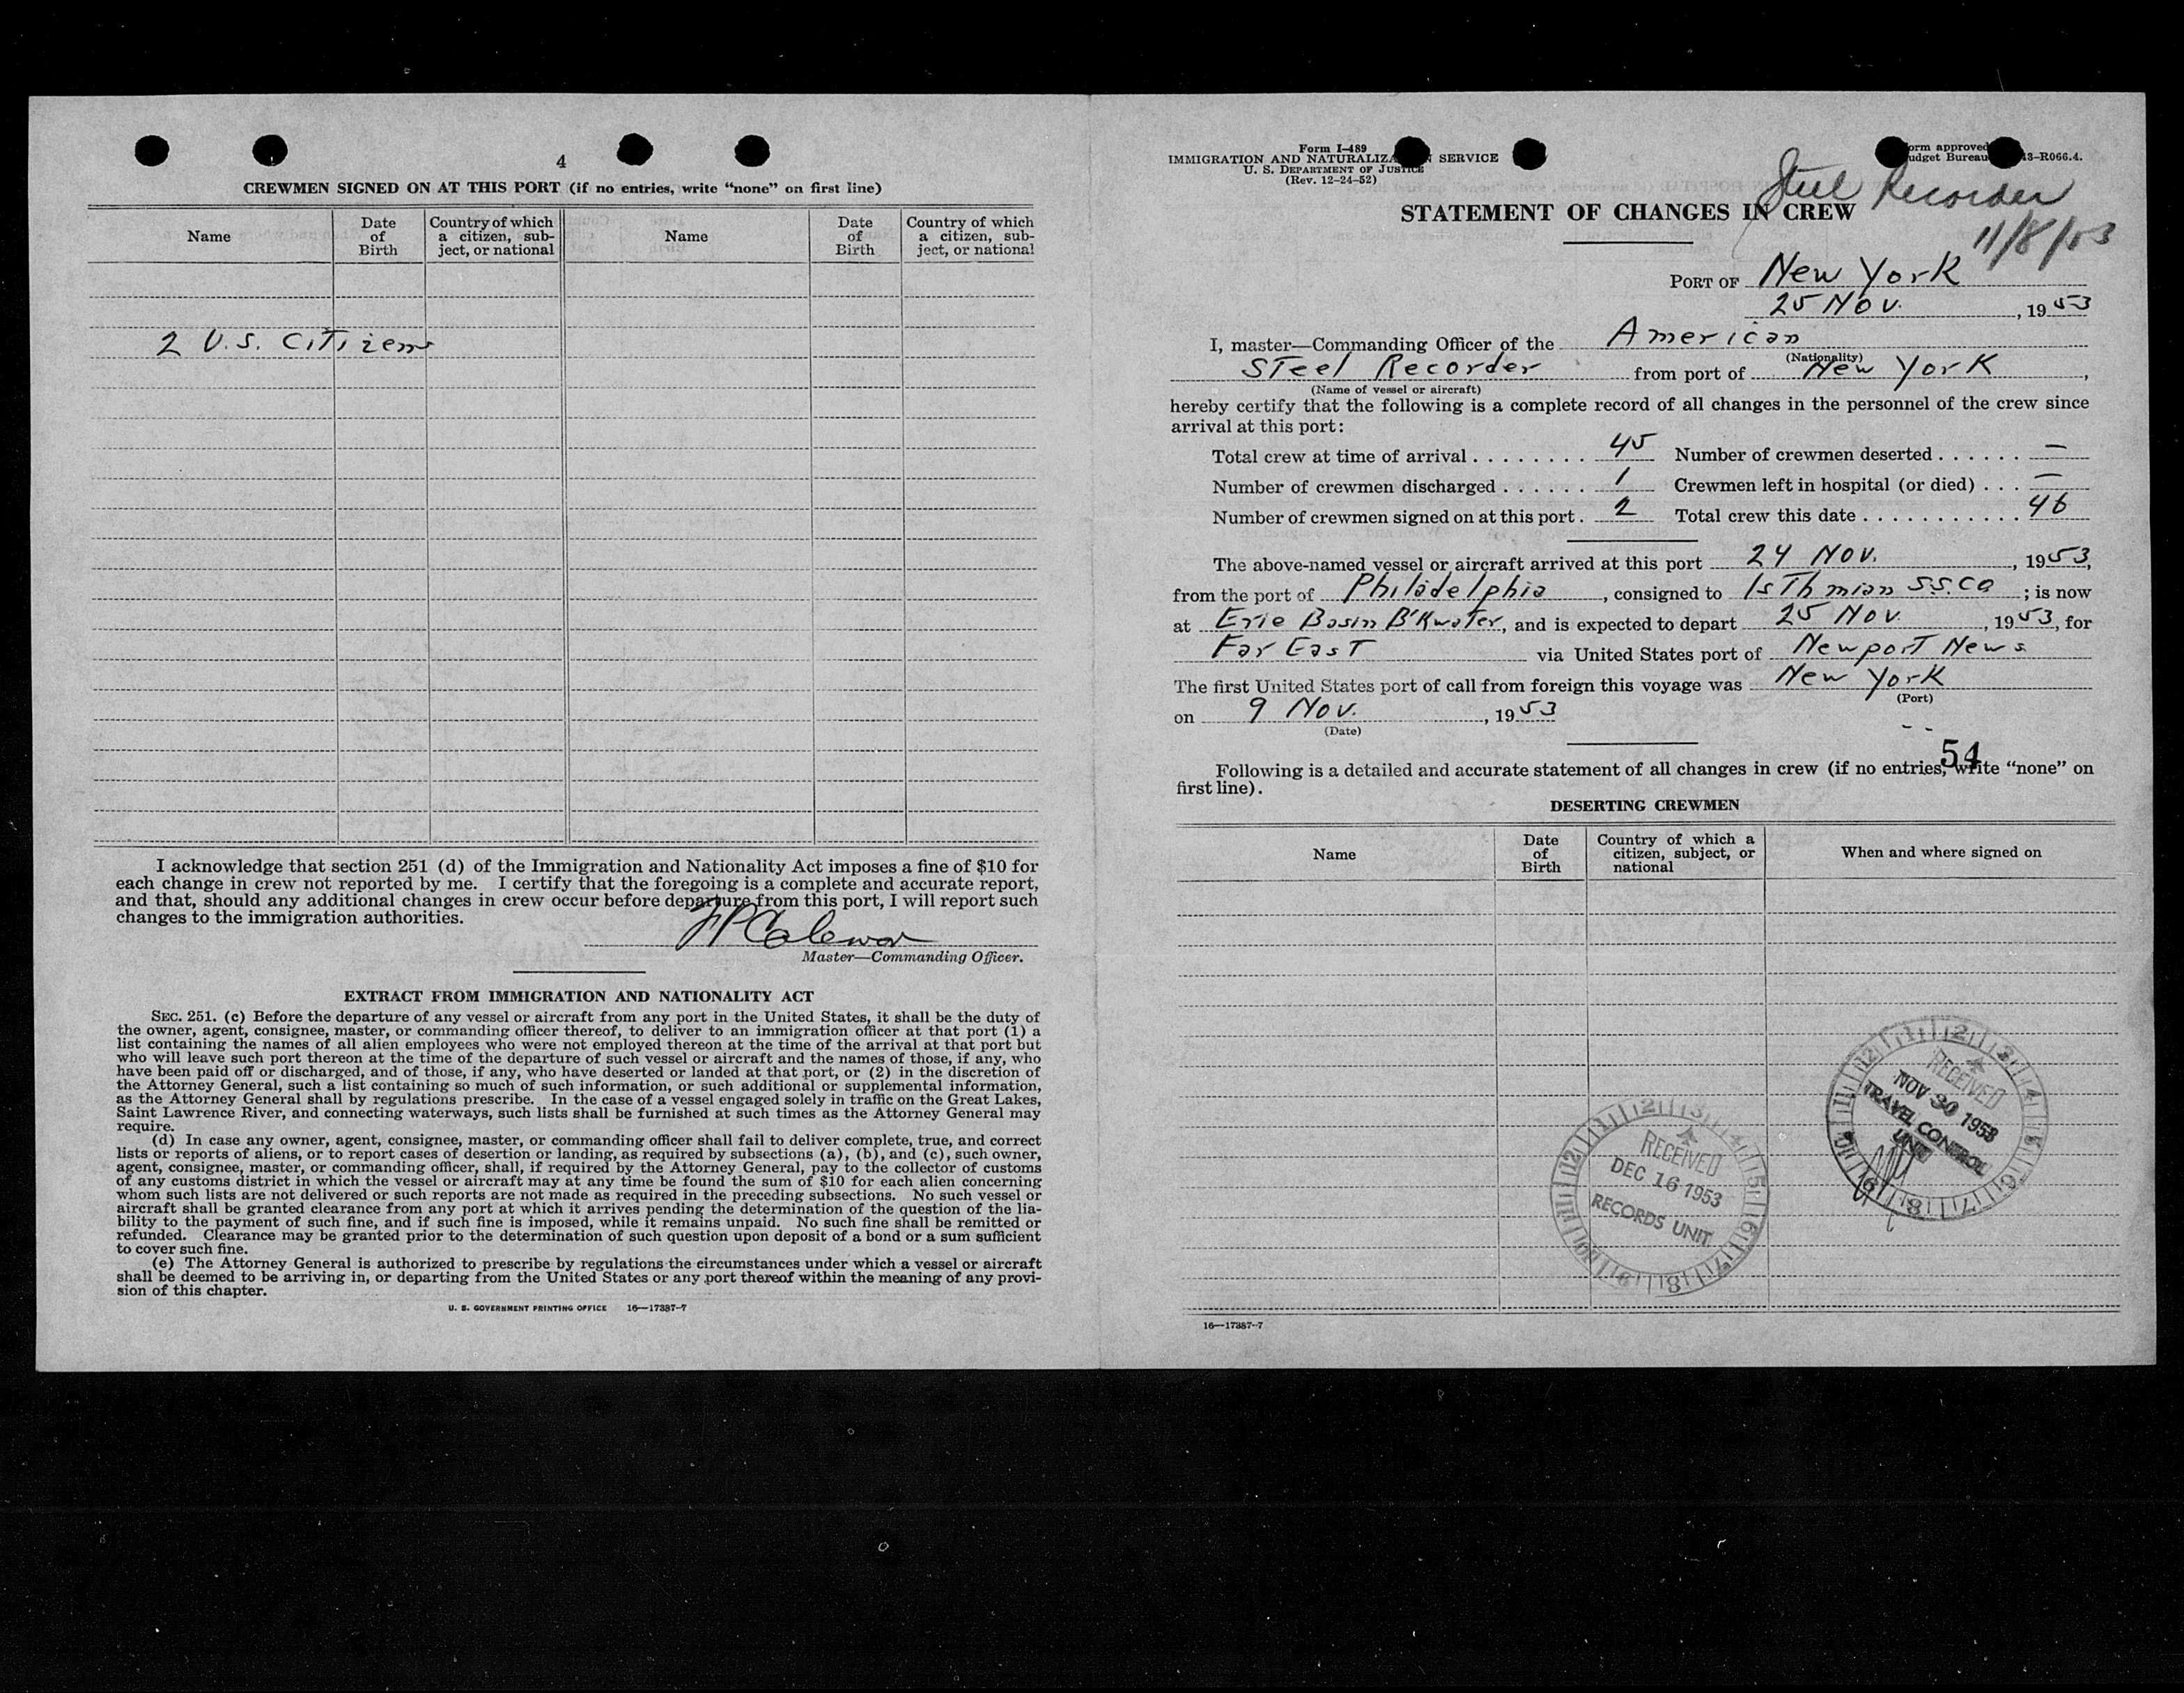 4
CREWMEN SIGNED ON AT THIS PORT (if no entries, write “none” on first line)
Name
Date of Birth
Country of which a citizen, sub-ject, or national
Name
Date of Birth
Country of which a citizen, sub-ject, or national
2 U.S. Citizens
I acknowledge that section 251 (d) of the Immigration and Nationality Act imposes a fine of $10 for
each change in crew not reported by me. I certify that the foregoing is a complete and accurate report,
and that, should any additional changes in crew occur before departure from this port, I will report such
changes to the immigration authorities.
Master—Commanding Officer.
EXTRACT FROM IMMIGRATION AND NATIONALITY ACT
SEC. 251. (c) Before the departure of any vessel or aircraft from any port in the United States, it shall be the duty of
the owner, agent, consignee, master, or commanding officer thereof, to deliver to an immigration officer at that port (1) a
list containing the names of all alien employees who were not employed thereon at the time of the arrival at that port but
who will leave such port thereon at the time of the departure of such vessel or aircraft and the names of those, if any, who
have been paid off or discharged, and of those, if any, who have deserted or landed at that port, or (2) in the discretion of
the Attorney General, such a list containing so much of such information, or such additional or supplemental information,
as the Attorney General shall by regulations prescribe. In the case of a vessel engaged solely in traffic on the Great Lakes,
Saint Lawrence River, and connecting waterways, such lists shall be furnished at such times as the Attorney General may
require.
(d) In case any owner, agent, consignee, master, or commanding officer shall fail to deliver complete, true, and correct
lists or reports of aliens, or to report cases of desertion or landing, as required by subsections (a), (b), and (c), such owner,
agent, consignee, master, or commanding officer, shall, if required by the Attorney General, pay to the collector of customs
of any customs district in which the vessel or aircraft may at any time be found the sum of $10 for each alien concerning
whom such lists are not delivered or such reports are not made as required in the preceding subsections. No such vessel or
aircraft shall be granted clearance from any port at which it arrives pending the determination of the question of the lia-
bility to the payment of such fine, and if such fine is imposed, while it remains unpaid. No such fine shall be remitted or
refunded. Clearance may be granted prior to the determination of such question upon deposit of a bond or a sum sufficient
to cover such fine.
(e) The Attorney General is authorized to prescribe by regulations the circumstances under which a vessel or aircraft
shall be deemed to be arriving in, or departing from the United States or any port thereof within the meaning of any provi-
sion of this chapter.
U. S. GOVERNMENT PRINTING OFFICE 16—17387-7
Form I-489
IMMIGRATION AND NATURALIZA N SERVICE
U. S. DEPARTMENT OF JUSTICE
(Rev. 12-24-52)
orm approved
udget Bureau 43-R066.4.
Steel Recorder
11/8/53
STATEMENT OF CHANGES IN CREW
PORT OF New York
25 Nov. , 1953
I, master—Commanding Officer of the American
(Nationality)
Steel Recorder from port of New York ,
(Name of vessel or aircraft)
hereby certify that the following is a complete record of all changes in the personnel of the crew since
arrival at this port:
Total crew at time of arrival . . . . . . . . 45 Number of crewmen deserted . . . . . . —
Number of crewmen discharged . . . . . . 1 Crewmen left in hospital (or died) . . . —
Number of crewmen signed on at this port . 2 Total crew this date . . . . . . . . . . . 46
The above-named vessel or aircraft arrived at this port 24 Nov. , 1953,
from the port of Philadelphia , consigned to Isthmian S.S. Co ; is now
at Erie Basin B'Kwater, and is expected to depart 25 Nov. , 1953, for
Far East via United States port of Newport News
The first United States port of call from foreign this voyage was New York
(Port)
on 9 Nov. , 1953
(Date)
54
Following is a detailed and accurate statement of all changes in crew (if no entries, write “none” on
first line).
DESERTING CREWMEN
Name
Date of Birth
Country of which a citizen, subject, or national
When and where signed on
12 1 2 3 4 5 6 7 8 9 10 11
RECEIVED
NOV 30 1953
TRAVEL CONTROL
UNIT
12 1 2 3 4 5 6 7 8 9 10 11
RECEIVED
DEC 16 1953
RECORDS UNIT
16—17387-7